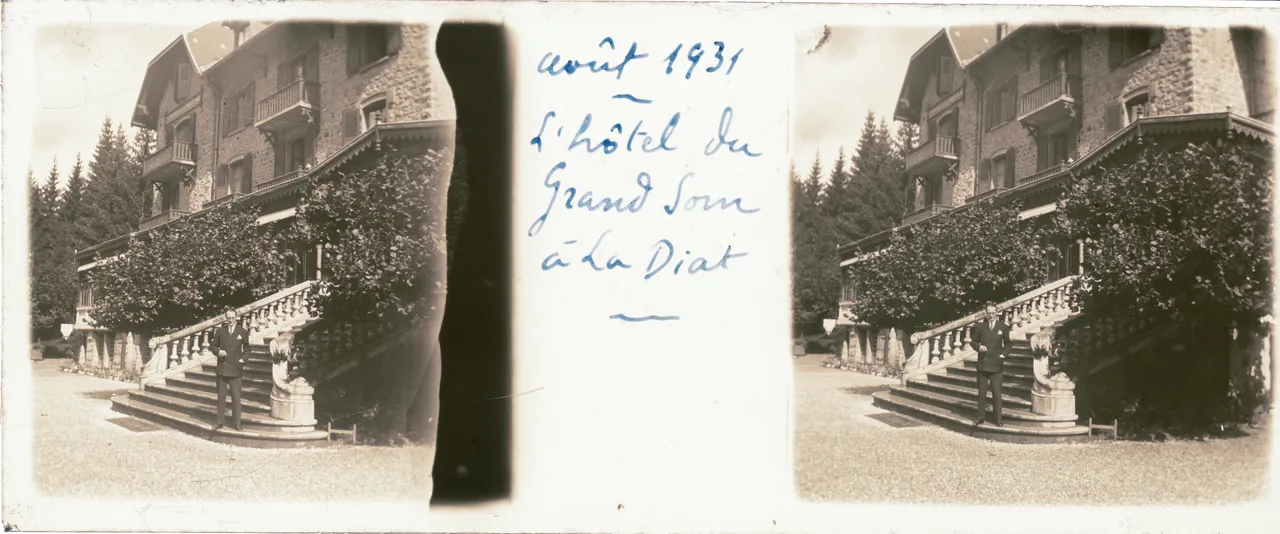 août 1931
L'hôtel du
Grand Som
à La Diat